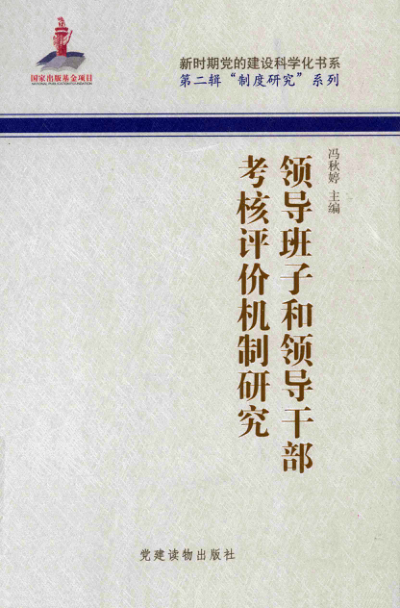 国家出版基金项目
NATIONAL PUBLICATION FOUNDATION
新时期党的建设科学化书系
第二辑“制度研究”系列
冯秋婷 主编
领导班子和领导干部
考核评价机制研究
党建读物出版社